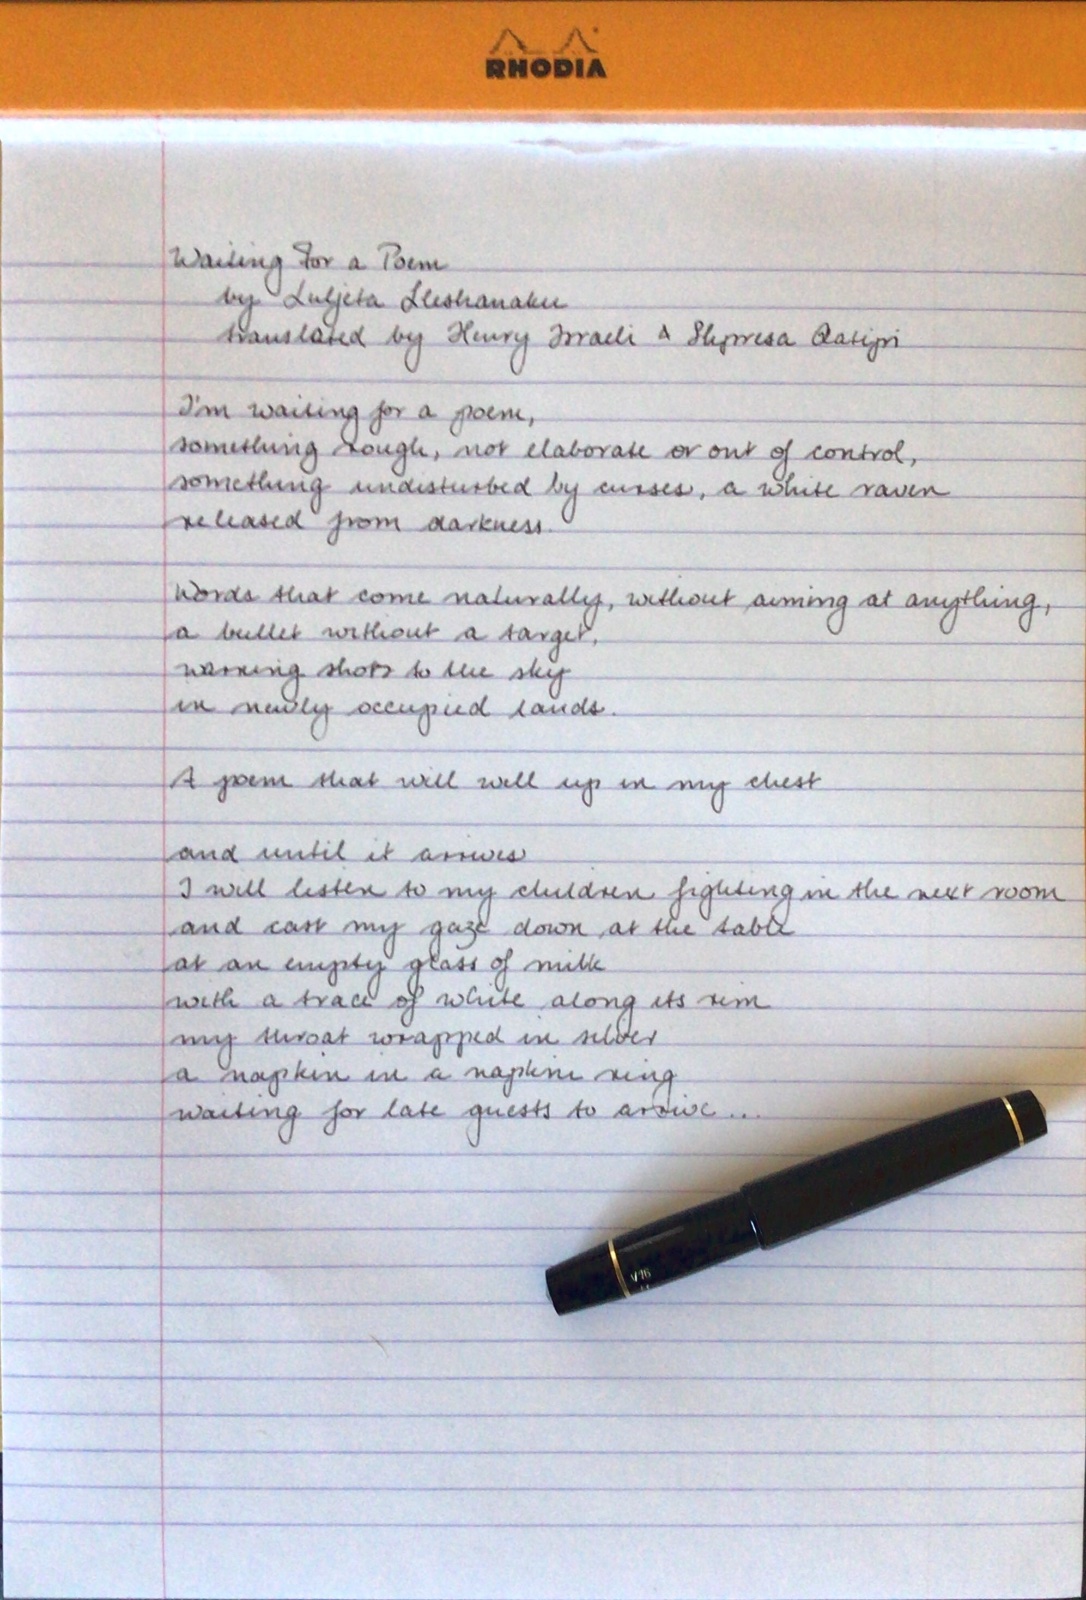 RHODIA
Waiting For a Poem
by Luljeta Lleshanaku
translated by Henry Israeli & Shpresa Qatipi
I'm waiting for a poem,
something rough, not elaborate or out of control,
something undisturbed by curses, a white raven
released from darkness.
Words that come naturally, without aiming at anything,
a bullet without a target,
warning shots to the sky
in newly occupied lands.
A poem that will well up in my chest
and until it arrives
I will listen to my children fighting in the next room
and cast my gaze down at the table
at an empty glass of milk
with a trace of white along its rim
my throat wrapped in silver
a napkin in a napkin ring
waiting for late guests to arrive...
V16